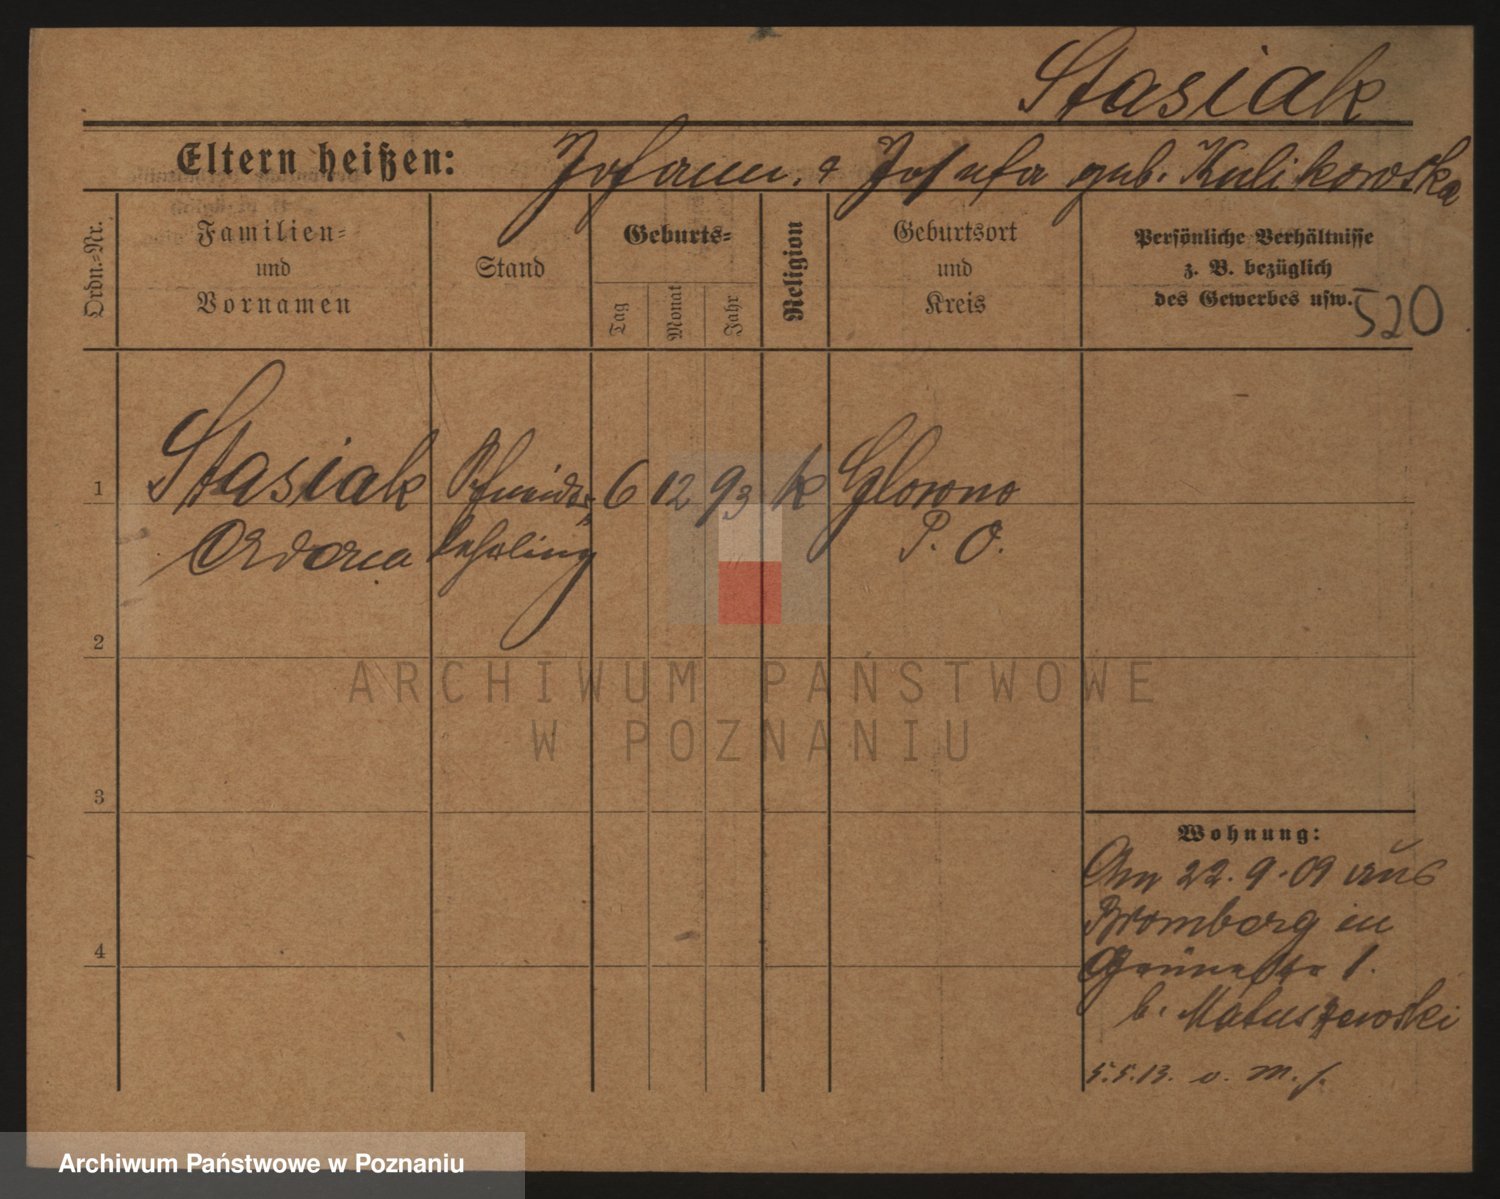 Stasiak
Eltern heißen: Johann. & Josefa geb. Kulikowska
Ordn.-Nr.
Familien-
und
Vornamen
Stand
Geburts-
Tag
Monat
Jahr
Religion
Geburtsort
und
Kreis
Persönliche Verhältnisse
z. B. bezüglich
des Gewerbes usw.
520
1 Stasiak 6 12 93 k Glowno
lehrling P. O.
2
3
4
Wohnung:
Am 22.9.09 aus
Bromberg in
Grünestr 1.
b. Matuszewski
5.5.13. v. M. f.
ARCHIWUM PAŃSTWOWE
W POZNANIU
Archiwum Państwowe w Poznaniu